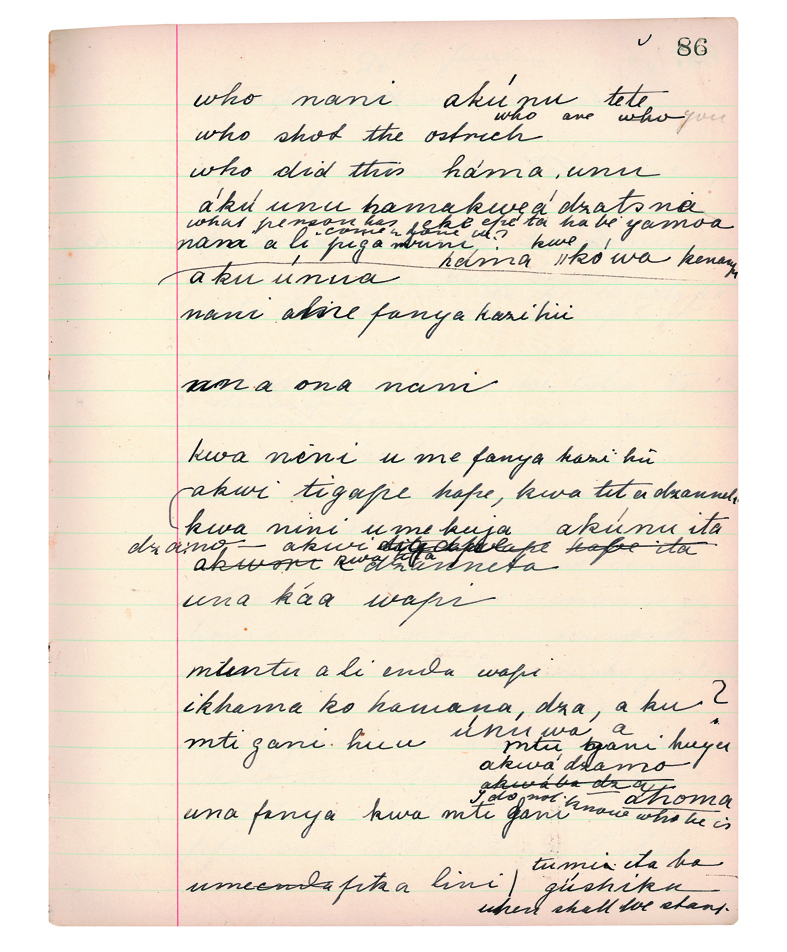 86
who nani akúnu tete
who are who you
who shot the ostrich
who did this háma, unu
ákú unu hamakweá dzatsna
what person has
come
nani a li piga mbuni, kwe
háma //kówa
aku únua
nani aliye fanya kazi hii
una ona nani
kwa nini u me fanya kazi hii
akwi tigape hape, kwa
kwa nini umekuja akúnu ita
dzamo — akwi hape ita
kwa dzanneta
una káa wapi
mtuntu a li enda wapi
ikhama ko hamana, dza, a ku ?
únu wa a
mti gani huu mtu gani huyu
akwá dzamo
akwába dza
I do not know who he is
ahoma
una fanya kwa mti gani
tumia ita ba
umeenda fika lini ) gúshiku
when shall we start.